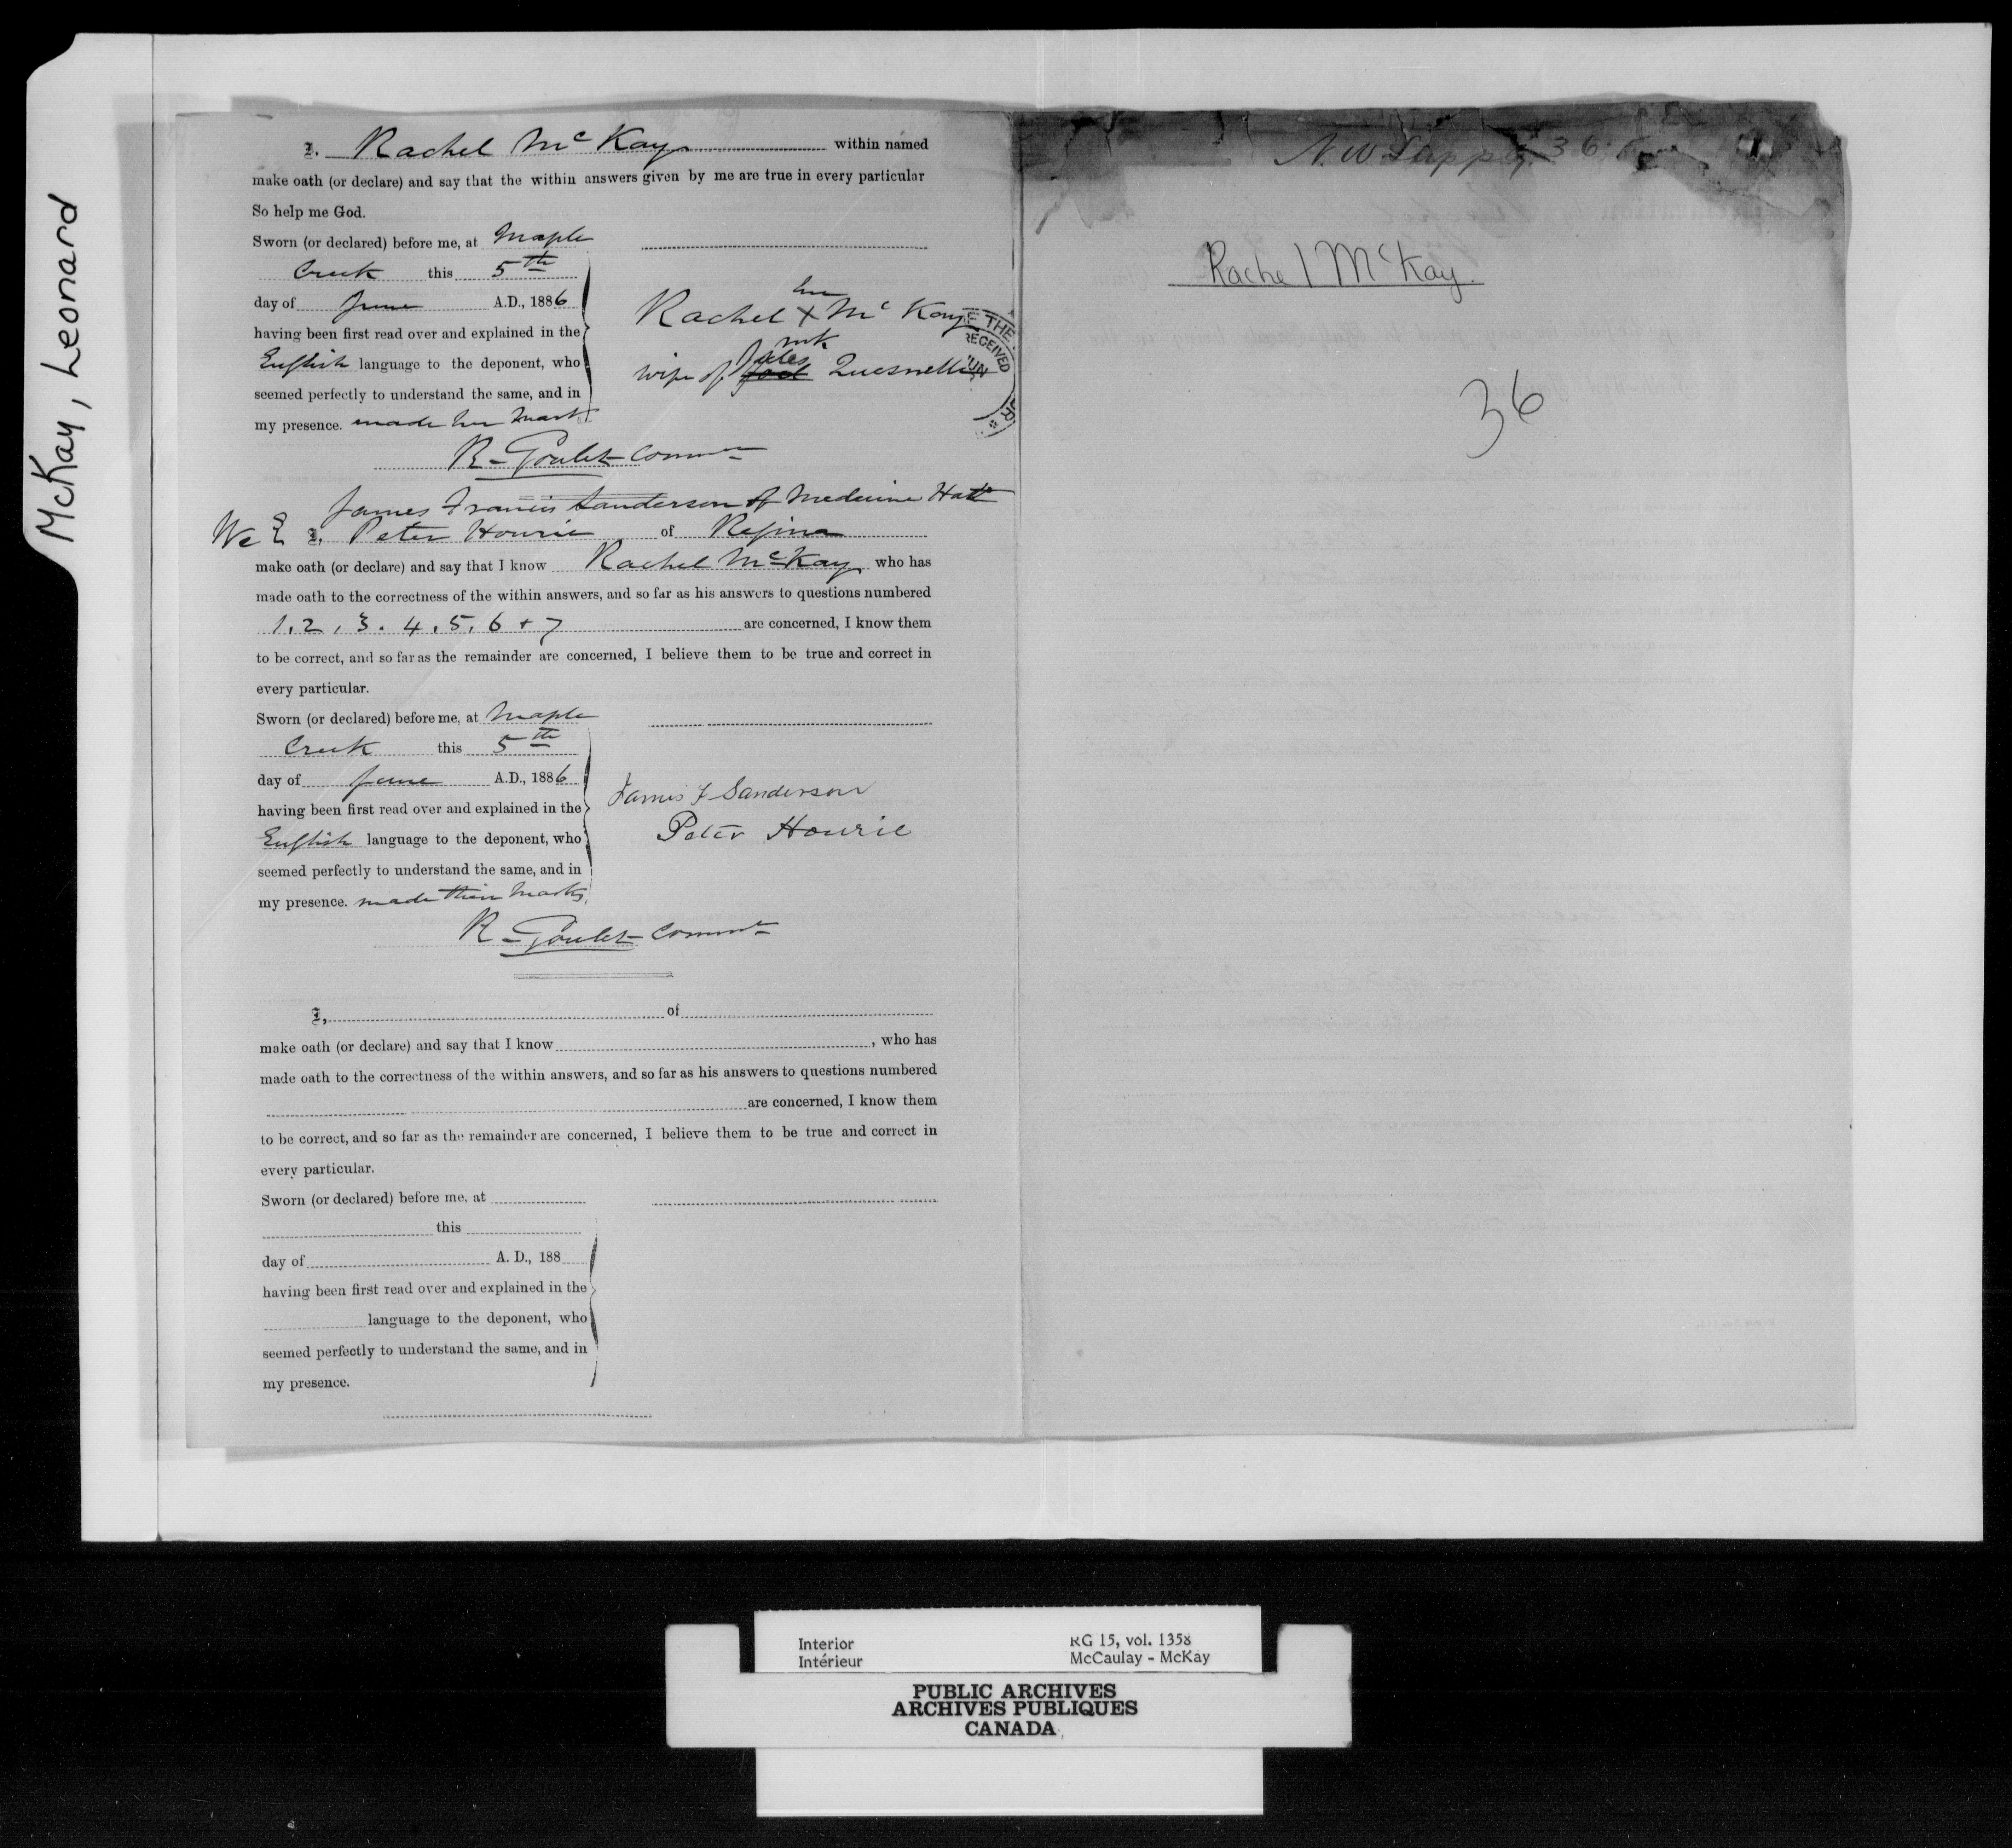 McKay, Leonard
I, Rachel McKay within named
make oath (or declare) and say that the within answers given by me are true in every particular
So help me God.
Sworn (or declared) before me, at Maple
Creek this 5th
day of June A.D., 1886
having been first read over and explained in the
English language to the deponent, who
seemed perfectly to understand the same, and in
my presence. made her mark
Rachel her X McKay
mrk
wife of Jules Quesnelle
RECEIVED
R. Goulet Commr
James Francis Sanderson of Medicine Hat
We & I, Peter Hourie of Regina
make oath (or declare) and say that I know Rachel McKay, who has
made oath to the correctness of the within answers, and so far as his answers to questions numbered
1, 2, 3. 4, 5, 6 + 7 are concerned, I know them
to be correct, and so far as the remainder are concerned, I believe them to be true and correct in
every particular.
Sworn (or declared) before me, at Maple
Creek this 5th
day of June A.D., 1886
having been first read over and explained in the
English language to the deponent, who
seemed perfectly to understand the same, and in
my presence. made their marks,
James F Sanderson
Peter Hourie
R. Goulet Commr
I, of
make oath (or declare) and say that I know , who has
made oath to the correctness of the within answers, and so far as his answers to questions numbered
are concerned, I know them
to be correct, and so far as the remainder are concerned, I believe them to be true and correct in
every particular.
Sworn (or declared) before me, at
this
day of A. D., 188
having been first read over and explained in the
language to the deponent, who
seemed perfectly to understand the same, and in
my presence.
N W 36
Rachel McKay.
36
Interior RG 15, vol. 1358
Intérieur McCaulay - McKay
PUBLIC ARCHIVES
ARCHIVES PUBLIQUES
CANADA